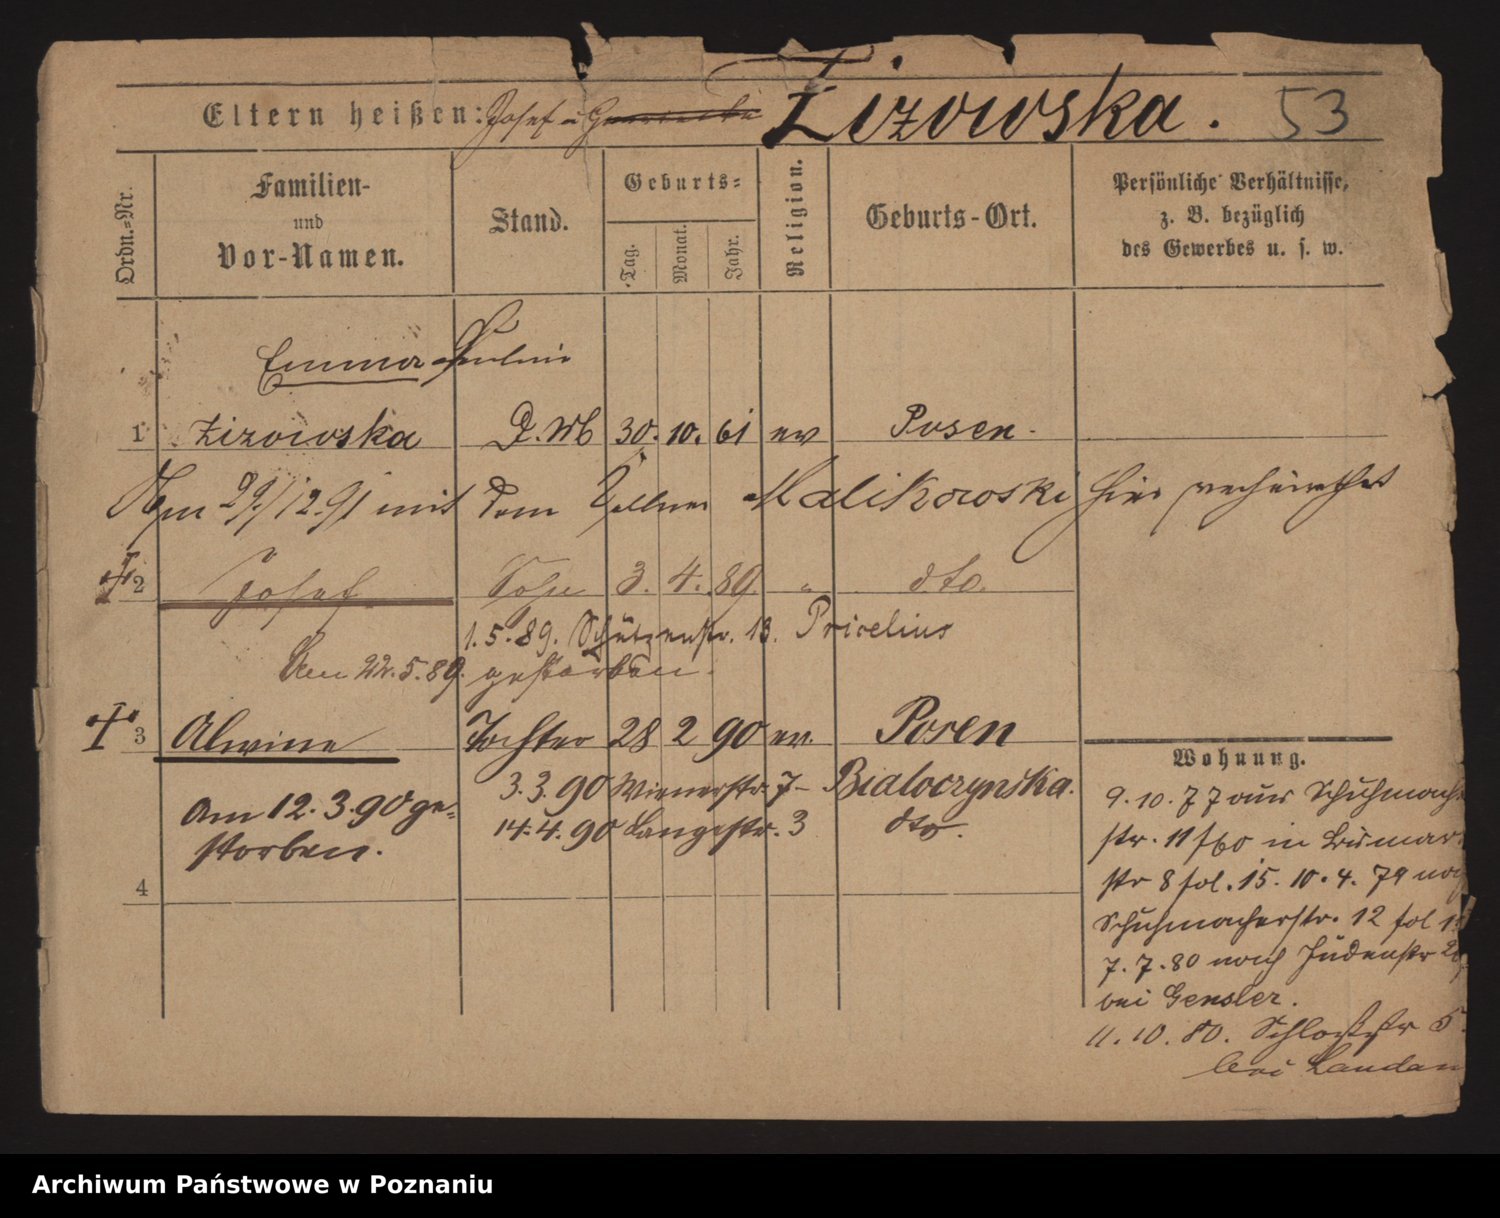 Eltern heißen: Josef u Żizowska. 53
Ordn.=Nr.
Familien-
und
Vor-Namen.
Stand.
Geburts=
Tag.
Monat.
Jahr.
Religion.
Geburts-Ort.
Persönliche Verhältnisse,
z. B. bezüglich
des Gewerbes u. s. w.
Emma Pauline
1 Żizowska D. Mb 30. 10. 61 ev Posen.
Am 29/12.91 mit dem Kellner Malikowski hier verheirathet
† 2 Josef Sohn 3. 4. 89. " dto.
1. 5. 89. Schützenstr. 13. Pricelius
Am 22. 5. 89. gestorben.
† 3 Alwine Tochter 28 2 90 ev. Posen
3. 3. 90 Wienerstr. 7- Bialoczynska.
Am 12. 3. 90 ge-
14. 4. 90 Langestr. 3 dto.
storben.
4
Wohnung.
9. 10. 77 aus Schuhmach
str. 11 f60 in Bismar
str 8 fol. 15. 10. 4. 79 nach
Schuhmacherstr. 12 fol
7. 7. 80 nach Judenstr
bei Gensler.
11. 10. 80. Schloßstr 5.
bei Landau
Archiwum Państwowe w Poznaniu